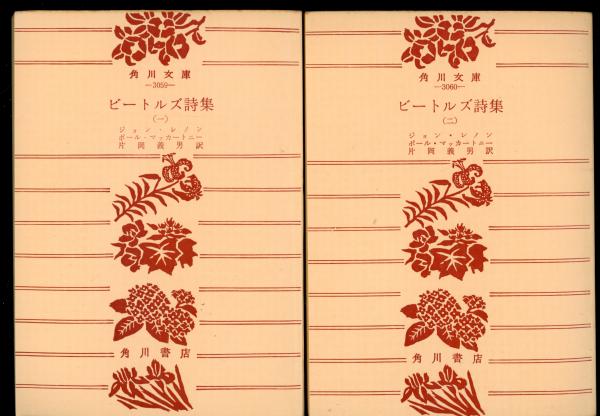 角川文庫
—3059—
ビートルズ詩集
(一)
ジョン・レノン
ポール・マッカートニー
片岡義男訳
角川書店
角川文庫
—3060—
ビートルズ詩集
(二)
ジョン・レノン
ポール・マッカートニー
片岡義男訳
角川書店